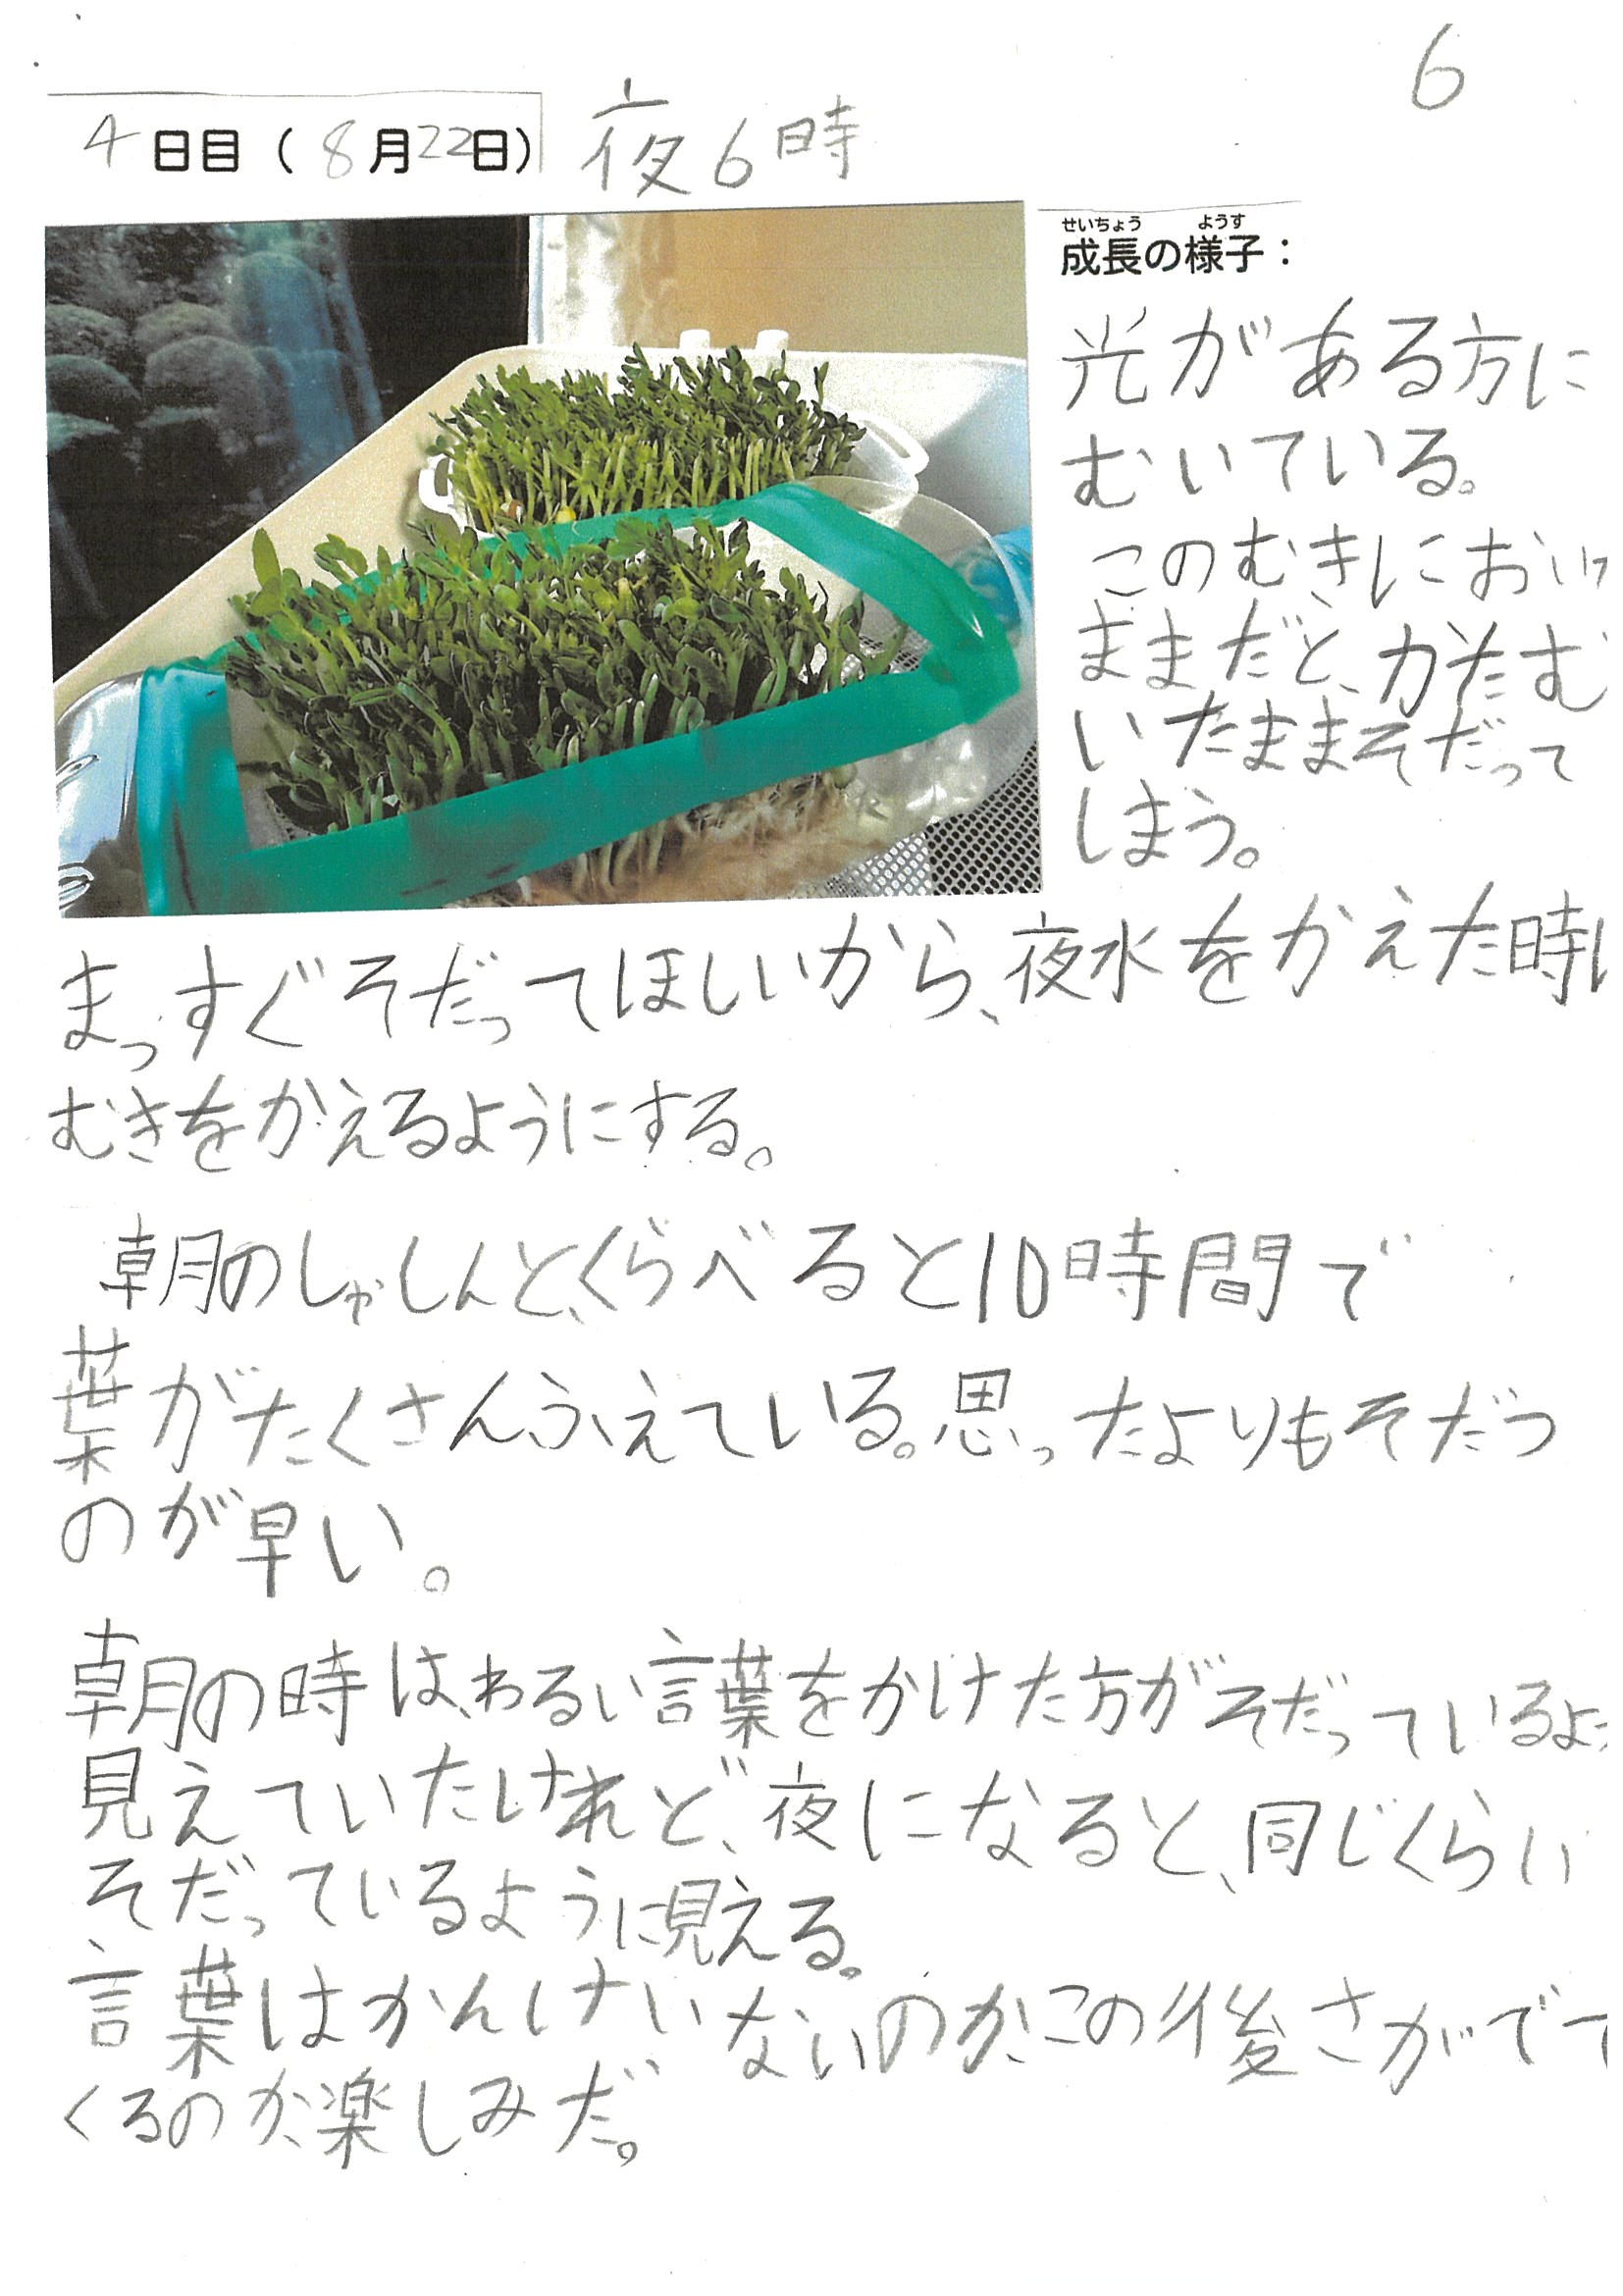 6
4日目(8月22日) 夜6時
せいちょう ようす
成長の様子：
光がある方に
むいている。
このむきにおいた
ままだと、かたむ
いたままそだって
しまう。
まっすぐそだってほしいから、夜水をかえた時に
むきをかえるようにする。
朝のしゃしんと、くらべると10時間で
葉がたくさんふえている。思ったよりもそだつ
のが早い。
朝の時は、わるい言葉をかけた方がそだっているよう
見えていたけれど、夜になると、同じくらい
そだっているように見える。
言葉はかんけいないのか、この後さがでて
くるのか、楽しみだ。